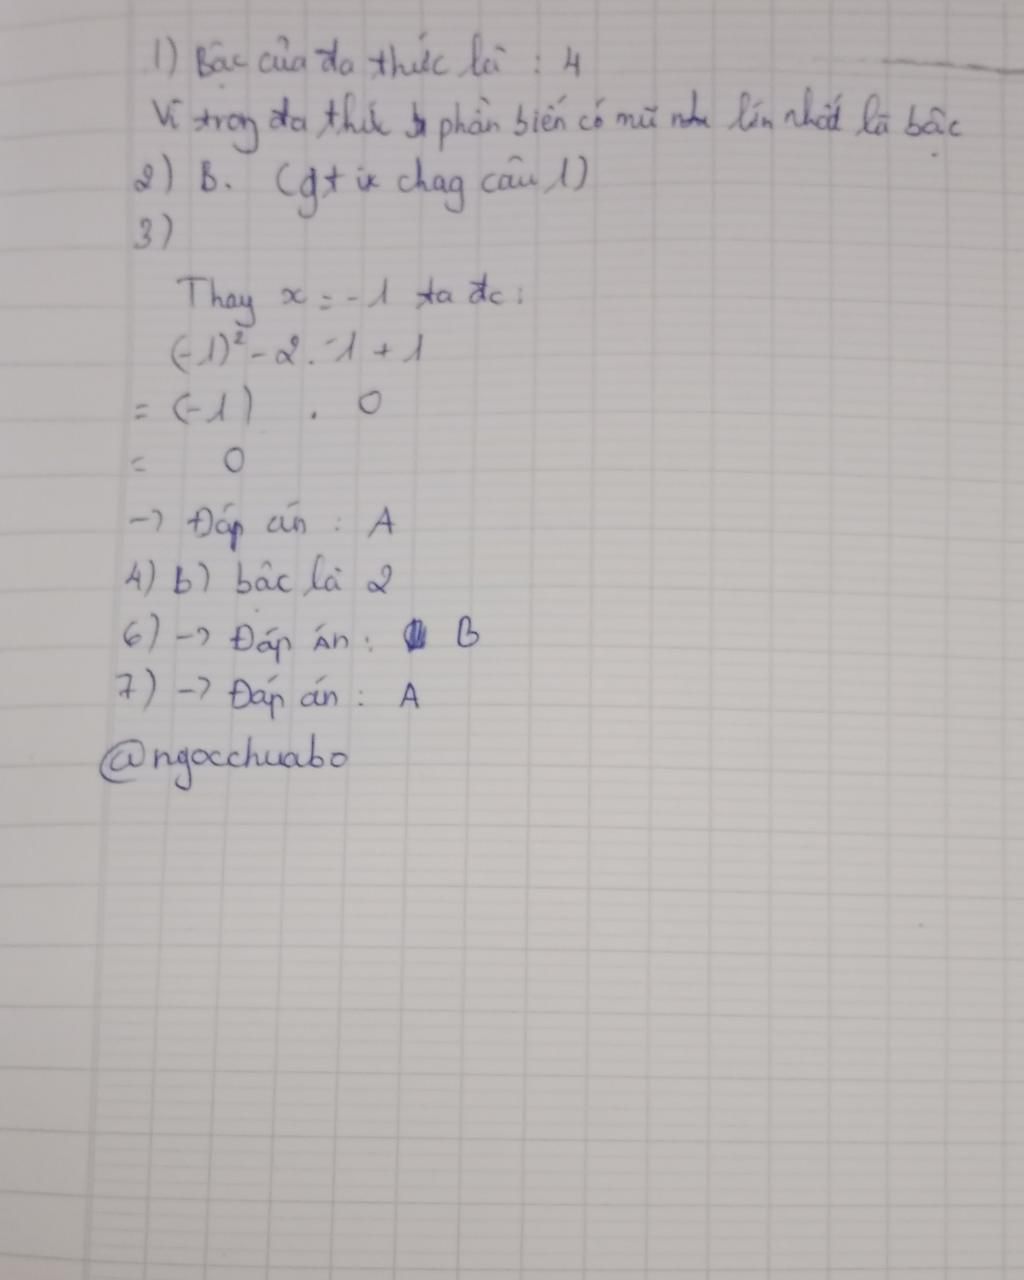 1) Bậc của đa thức là : 4
Vì trog đa thức phần biến có mũ lớn nhất là bậc
2) B. (gt ix chag câu 1)
3)
Thay x = -1 ta đc :
(-1)² - 2 . -1 + 1
= (-1) . 0
= 0
-> Đáp án : A
4) b) bậc là 2
6) -> Đáp Án : B
7) -> Đáp án : A
@ngocchuabo